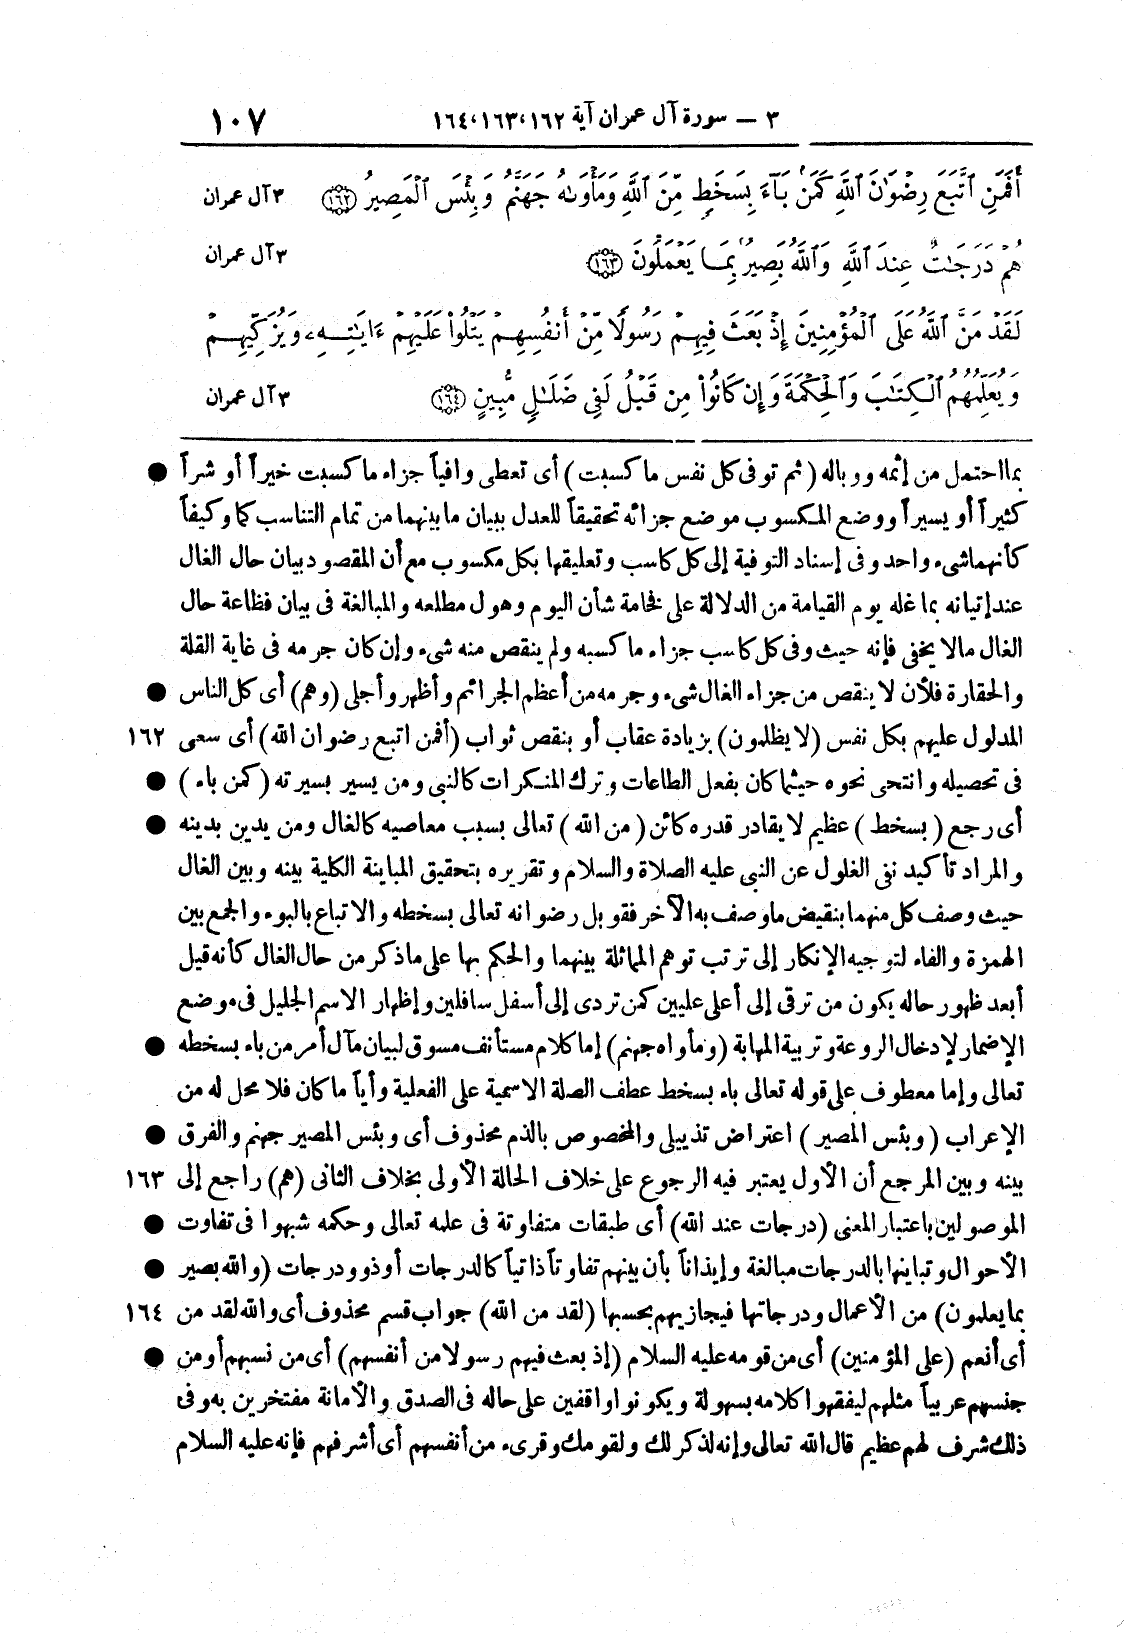 ٣ — سورة آل عمران آية ١٦٢،١٦٣،١٦٤ ١٠٧
أَفَمَنِ ٱتَّبَعَ رِضْوَٰنَ ٱللَّهِ كَمَنۢ بَآءَ بِسَخَطٍ مِّنَ ٱللَّهِ وَمَأْوَىٰهُ جَهَنَّمُ وَبِئْسَ ٱلْمَصِيرُ ١٦٢ ٣ آل عمران
هُمْ دَرَجَٰتٌ عِندَ ٱللَّهِ وَٱللَّهُ بَصِيرٌۢ بِمَا يَعْمَلُونَ ١٦٣ ٣ آل عمران
لَقَدْ مَنَّ ٱللَّهُ عَلَى ٱلْمُؤْمِنِينَ إِذْ بَعَثَ فِيهِمْ رَسُولًا مِّنْ أَنفُسِهِمْ يَتْلُوا۟ عَلَيْهِمْ ءَايَٰتِهِۦ وَيُزَكِّيهِمْ
وَيُعَلِّمُهُمُ ٱلْكِتَٰبَ وَٱلْحِكْمَةَ وَإِن كَانُوا۟ مِن قَبْلُ لَفِى ضَلَٰلٍ مُّبِينٍ ١٦٤ ٣ آل عمران
بما احتمل من إثمه ووباله (ثم توفى كل نفس ما كسبت) أى تعطى وافياً جزاء ما كسبت خيراً أو شراً ●
كثيراً أو يسيراً ووضع المكسوب موضع جزائه تحقيقاً للعدل ببيان ما بينهما من تمام التناسب كما وكيفاً
كأنهما شىء واحد وفى إسناد التوفية إلى كل كاسب وتعليقها بكل مكسوب مع أن المقصود بيان حال الغال
عند إتيانه بما غله يوم القيامة من الدلالة على فخامة شأن اليوم وهول مطلعه والمبالغة فى بيان فظاعة حال
الغال مالا يخفى فإنه حيث وفى كل كاسب جزاء ما كسبه ولم ينقص منه شىء وإن كان جرمه فى غاية القلة
والحقارة فلأن لا ينقص من جزاء الغال شىء وجرمه من أعظم الجرائم وأظهر وأجلى (وهم) أى كل الناس ●
المدلول عليهم بكل نفس (لا يظلمون) بزيادة عقاب أو بنقص ثواب (أفمن اتبع رضوان الله) أى سعى ١٦٢
فى تحصيله وانتحى نحوه حيثما كان بفعل الطاعات وترك المنكرات كالنبى ومن يسير بسيرته (كمن باء) ●
أى رجع (بسخط) عظيم لا يقادر قدره كائن (من الله) تعالى بسبب معاصيه كالغال ومن يدين بدينه ●
والمراد تأكيد نفى الغلول عن النبى عليه الصلاة والسلام وتقريره بتحقيق المباينة الكلية بينه وبين الغال
حيث وصف كل منهما بنقيض ما وصف به الآخر فقوبل رضوانه تعالى بسخطه والاتباع بالبوء والجمع بين
الهمزة والفاء لتوجيه الإنكار إلى ترتب توهم المماثلة بينهما والحكم بها على ما ذكر من حال الغال كأنه قيل
أبعد ظهور حاله يكون من ترقى إلى أعلى عليين كمن تردى إلى أسفل سافلين وإظهار الاسم الجليل فى موضع
الإضمار لإدخال الروعة وتربية المهابة (ومأواه جهنم) إما كلام مستأنف مسوق لبيان مآل أمر من باء بسخطه ●
تعالى وإما معطوف على قوله تعالى باء بسخط عطف الصلة الاسمية على الفعلية وأياً ما كان فلا محل له من
الإعراب (وبئس المصير) اعتراض تذييلى والمخصوص بالذم محذوف أى وبئس المصير جهنم والفرق ●
بينه وبين المرجع أن الأول يعتبر فيه الرجوع على خلاف الحالة الأولى بخلاف الثانى (هم) راجع إلى ١٦٣
الموصولين باعتبار المعنى (درجات عند الله) أى طبقات متفاوتة فى علمه تعالى وحكمه شبهوا فى تفاوت ●
الأحوال وتباينها بالدرجات مبالغة وإيذاناً بأن بينهم تفاوتاً ذاتياً كالدرجات أو ذوو درجات (والله بصير ●
بما يعلمون) من الأعمال ودرجاتها فيجازيهم بحسبها (لقد من الله) جواب قسم محذوف أى والله لقد من ١٦٤
أى أنعم (على المؤمنين) أى من قومه عليه السلام (إذ بعث فيهم رسولا من أنفسهم) أى من نسبهم أو من ●
جنسهم عربياً مثلهم ليفقهوا كلامه بسهولة ويكونوا واقفين على حاله فى الصدق والأمانة مفتخرين به وفى
ذلك شرف لهم عظيم قال الله تعالى وإنه لذكر لك ولقومك وقرىء من أنفسهم أى أشرفهم فإنه عليه السلام